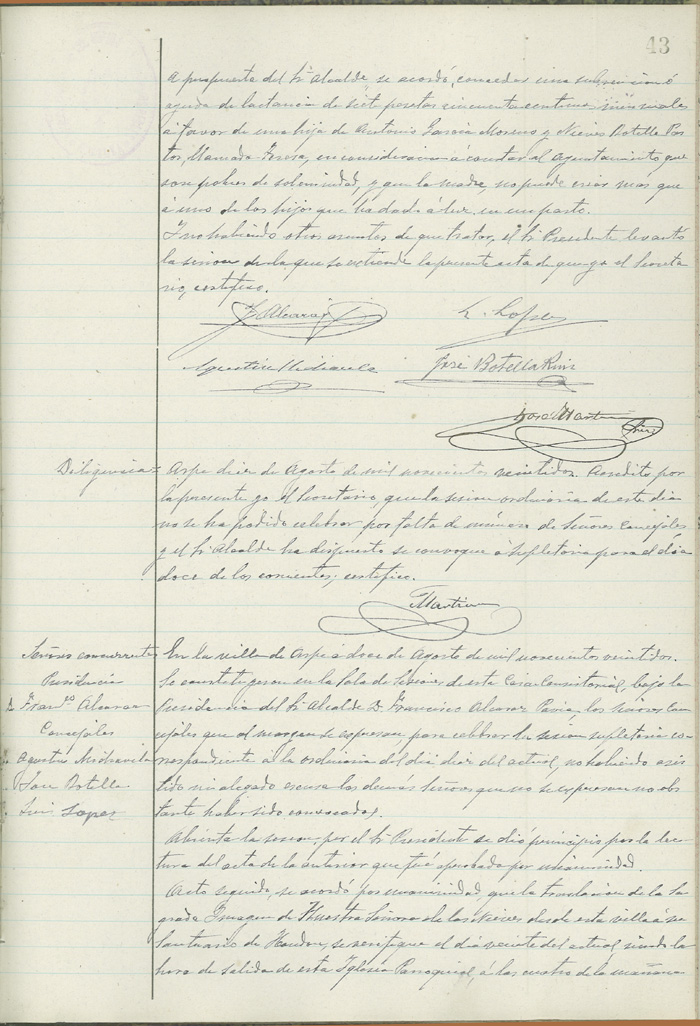 43
A propuesta del Sr. Alcalde se acordó, conceder una subvención ó
ayuda de lactancia de siete pesetas cincuenta centimos mensuales
á favor de una hija de Antonio Garcia Moreno y Nieves Botella Pas-
tor, llamada Teresa, en consideracion á constar al Ayuntamiento que
son pobres de solemnidad, y que la madre, no puede criar mas que
á uno de los hijos que ha dado á luz en un parto.
Y no habiendo otros asuntos de que tratar, el Sr. Presidente levantó
la sesion de la que se extiende la presente acta de que yo el Secreta-
rio, certifico.
F. Alcaraz L. Lopez
Agustin Mirávila José Botella
José Martin
Diligencia= Aspe diez de Agosto de mil novecientos veintidos. Acredito por
la presente yo el Secretario, que la sesion ordinaria de este dia
no se ha podido celebrar por falta de número de Señores Concejales
y el Sr. Alcalde ha dispuesto se convoque á supletoria para el dia
doce de los corrientes; certifico.
Martin
Señores concurrentes
Presidencia
D. Franco Alcaraz
Concejales
Agustin Miravila
José Botella
Luis Lopez
En la villa de Aspe á doce de Agosto de mil novecientos veintidos.
Se constituyeron en la Sala de Sesiones de esta Casa Consistorial, bajo la
Presidencia del Sr. Alcalde D. Francisco Alcaraz Pavia, los señores Con-
cejales que al margen se expresan, para celebrar la sesion supletoria co-
rrespondiente á la ordinaria del dia diez del actual, no habiendo asis-
tido ni alegado escusa los demás Señores que no se expresan no obs-
tante haber sido convocados.
Abierta la sesion por el Sr. Presidente se dió principio por la lec-
tura del acta de la anterior que fué aprobada por unanimidad.
Acto seguido, se acordó por unanimidad, que la traslacion de la Sa-
grada Imagen de Nuestra Señora de las Nieves desde esta villa á su
Santuario de Hondon, se verifique el dia veinte del actual siendo la
hora de salida de esta Iglesia Parroquial, á las cuatro de la mañana